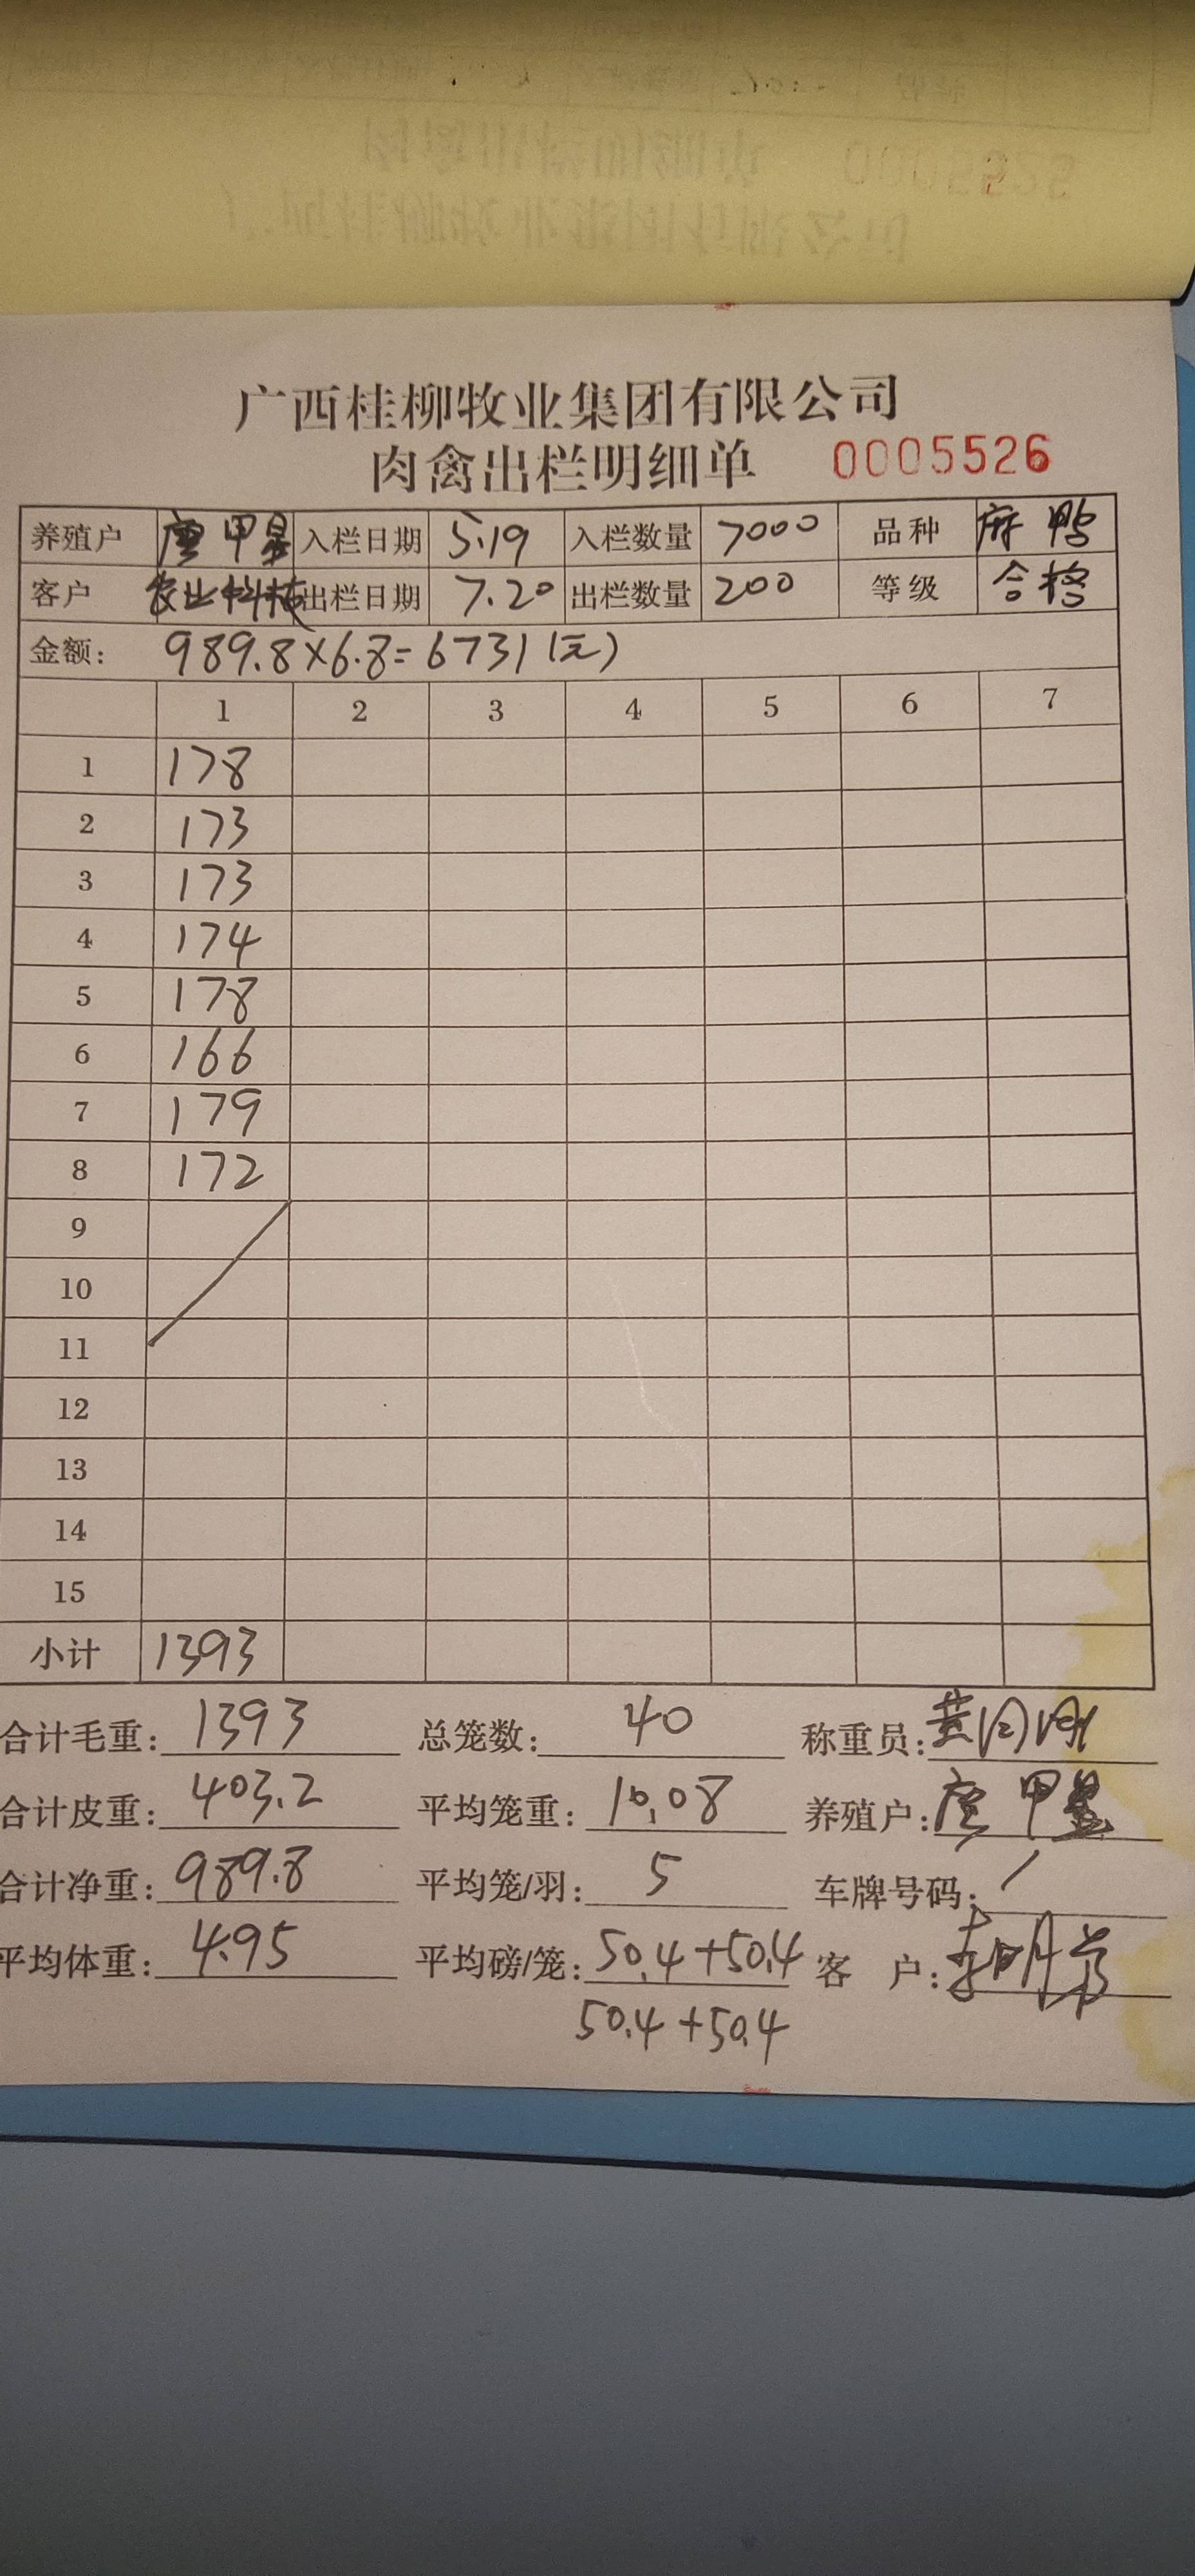 广西桂柳牧业集团有限公司
肉禽出栏明细单 0005526
养殖户 唐甲星 入栏日期 5.19 入栏数量 7000 品种 麻鸭
客户 农业科技 出栏日期 7.20 出栏数量 200 等级 合格
金额: 989.8×6.8=6731(元)
1 2 3 4 5 6 7
1 178
2 173
3 173
4 174
5 178
6 166
7 179
8 172
9
10
11
12
13
14
15
小计 1393
合计毛重: 1393 总笼数: 40 称重员:
合计皮重: 403.2 平均笼重: 10.08 养殖户: 唐甲星
合计净重: 989.8 平均笼/羽: 5 车牌号码: /
平均体重: 4.95 平均磅/笼: 50.4+50.4 客 户:
50.4+50.4